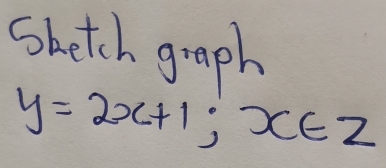 Sketch graph
y = 2x+1 ; x ∈ Z